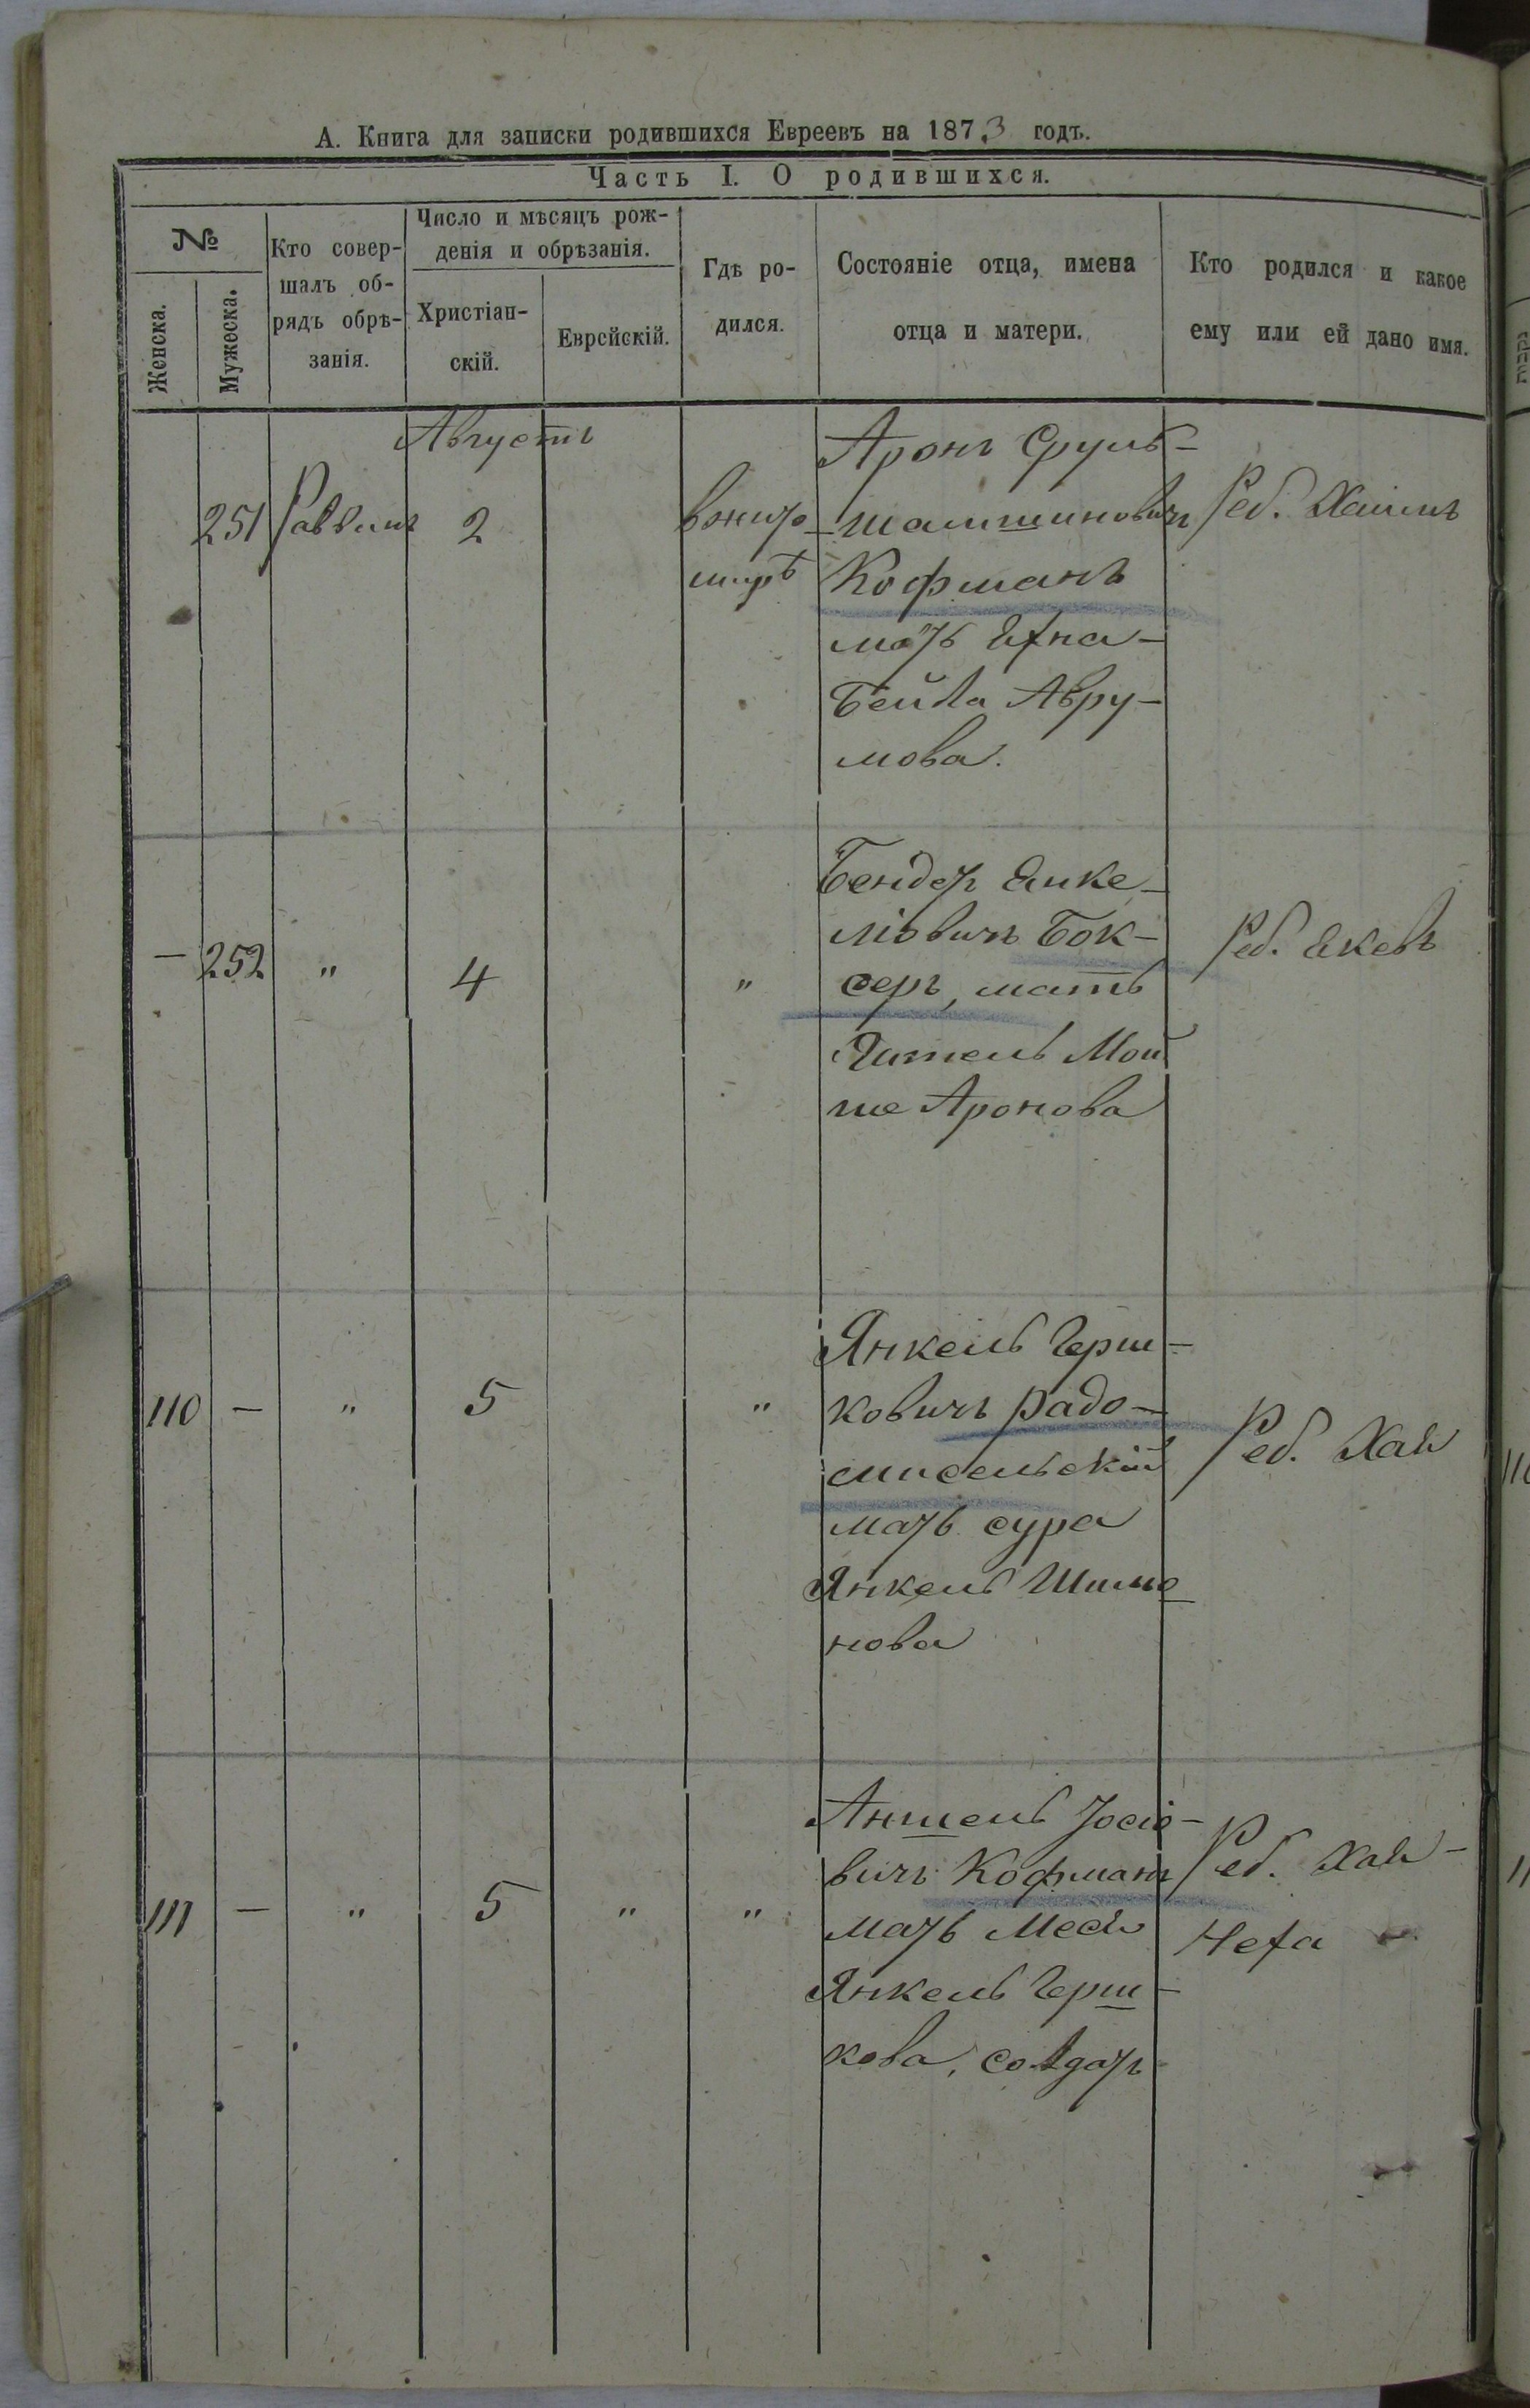 А. Книга для записки родившихся Евреевъ на 1873 годъ.
Часть I. О родившихся.
№
Женска.
Мужеска.
Кто совер-
шалъ об-
рядъ обрѣ-
занія.
Число и мѣсяцъ рож-
денія и обрѣзанія.
Христіан-
скій.
Еврейскій.
Гдѣ ро-
дился.
Состояніе отца, имена
отца и матери.
Кто родился и какое
ему или ей дано имя.
Августъ
251 Раввинъ 2
Аронъ Сруль-
шамшиновичъ
Кофманъ
мать Ехна-
Бейла Авру-
мова.
Реб. Хаимъ
— 252 " 4 "
Бендетъ Янке-
ліовичъ Бок-
серъ, мать
Мой
ше Аронова
Реб.
110 — " 5 "
Янкель Герш-
ковичъ Радо-
мисельскій
мать сура
Янкель Шимо
нова
Реб. Хая
111 — " 5 " "
Аншель Іосіо-
вичъ Кофманъ
мать
Янкель Герш-
кова, солдатъ
Реб. Хая-
Неха